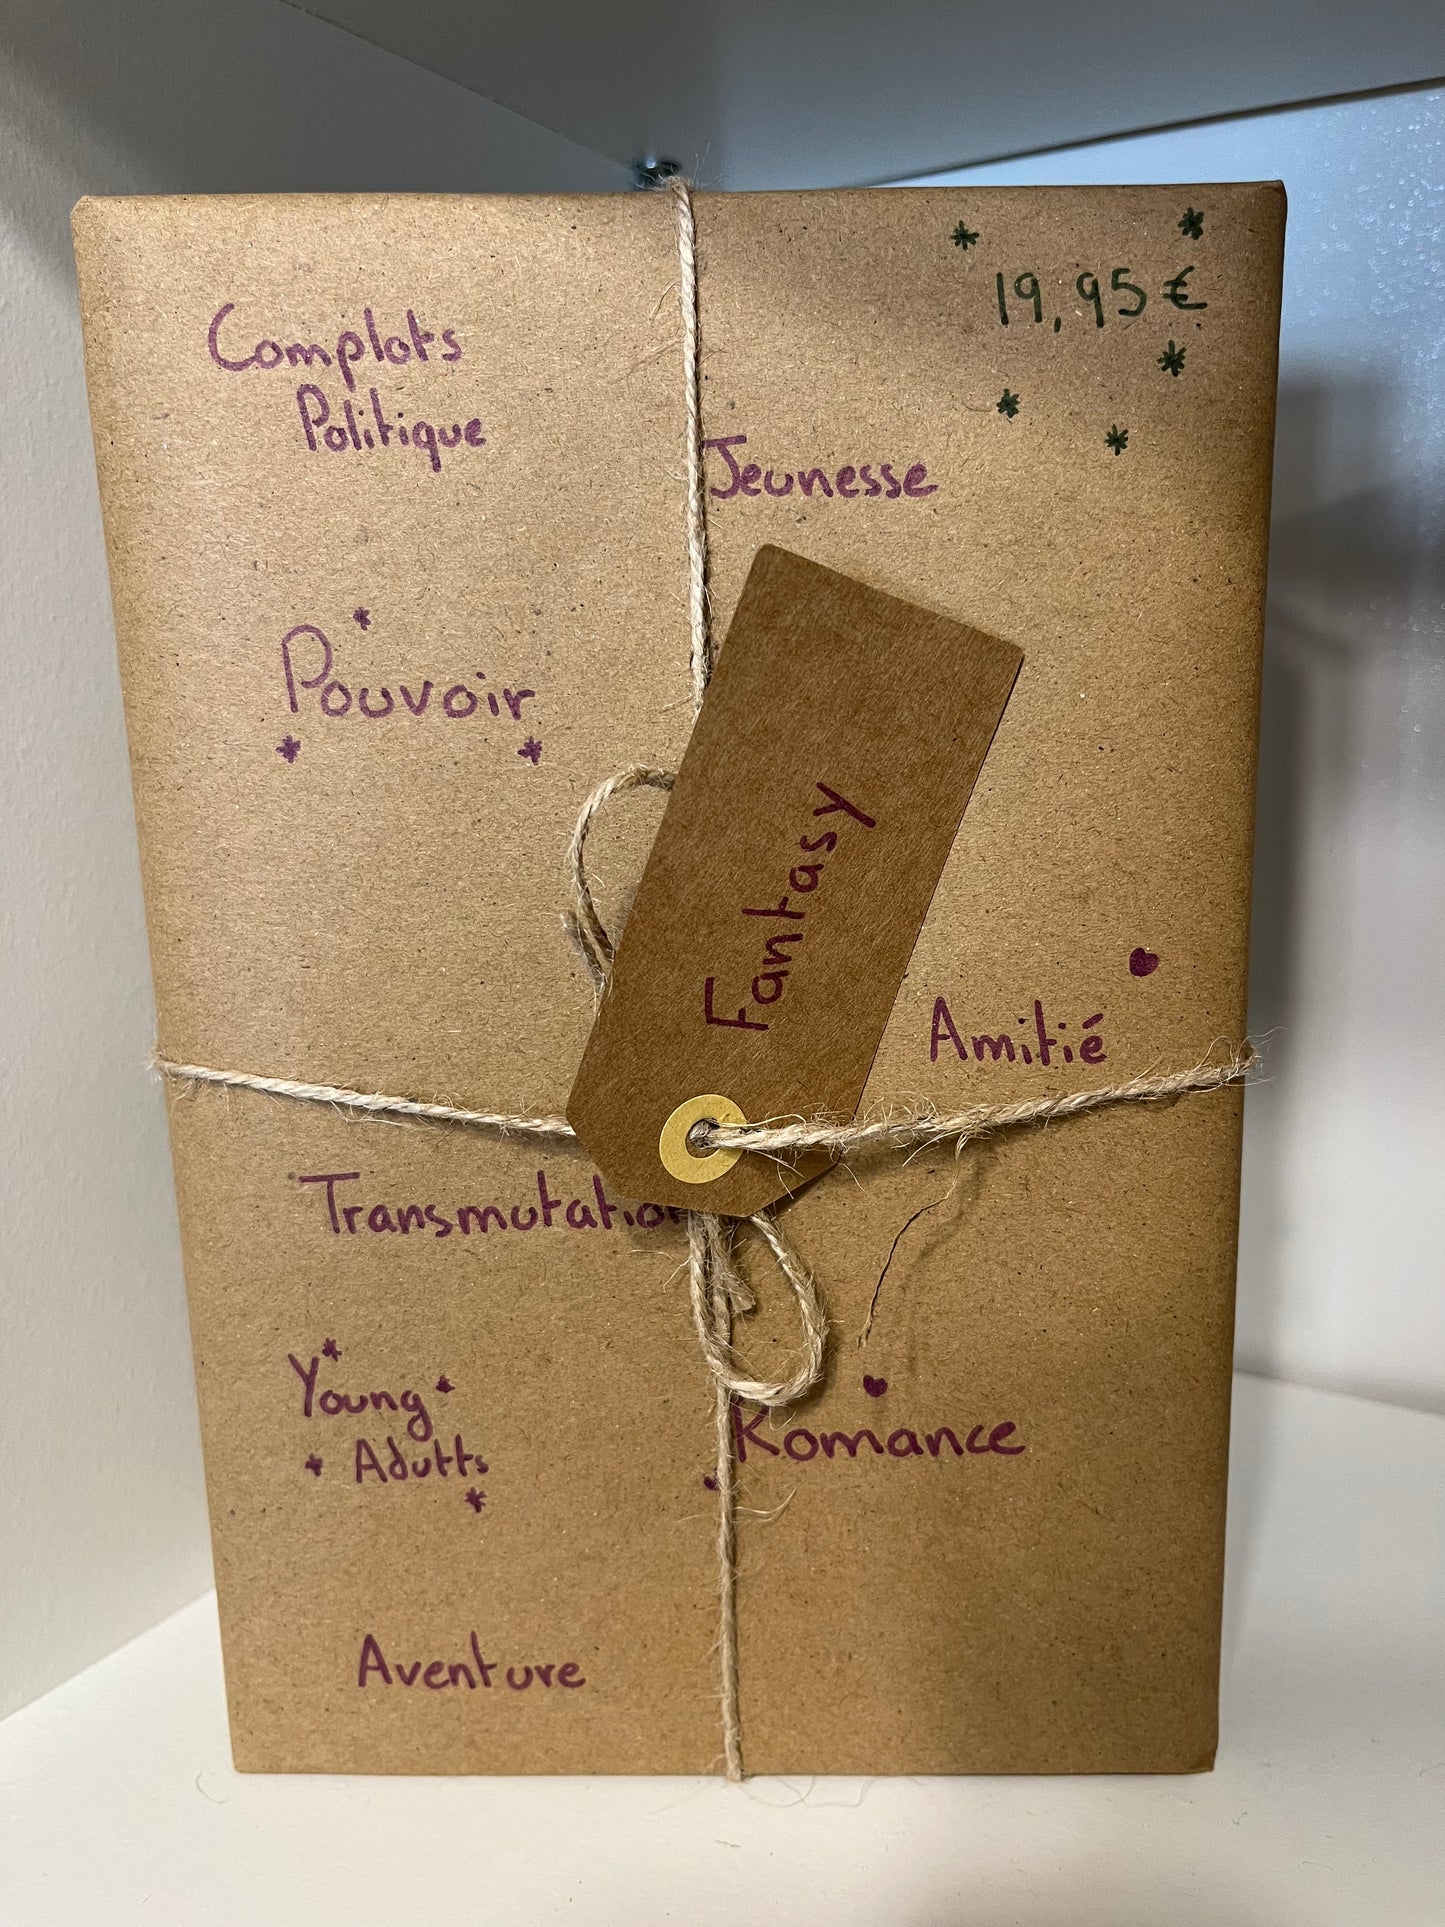 19,95€
Complots
Politique
Jeunesse
Pouvoir
Fantasy
Amitié
Transmutation
Young
Adults
Romance
Aventure